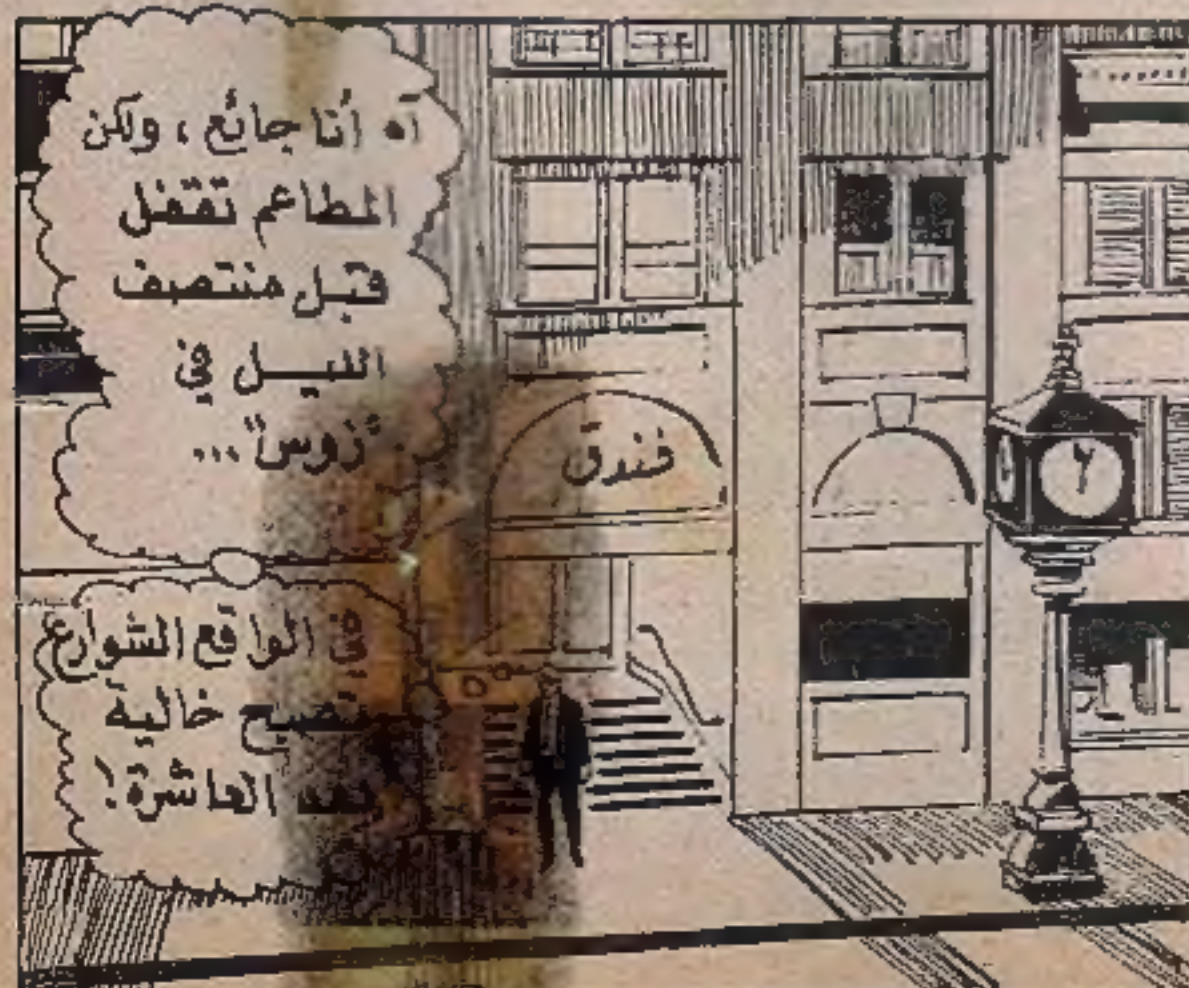 آه أنا جائع، ولكن
المطاعم تقفل
قبل منتصف
الليل في
"زوس"...
في الواقع الشوارع
تصبح خالية
بعد العاشرة!
فندق